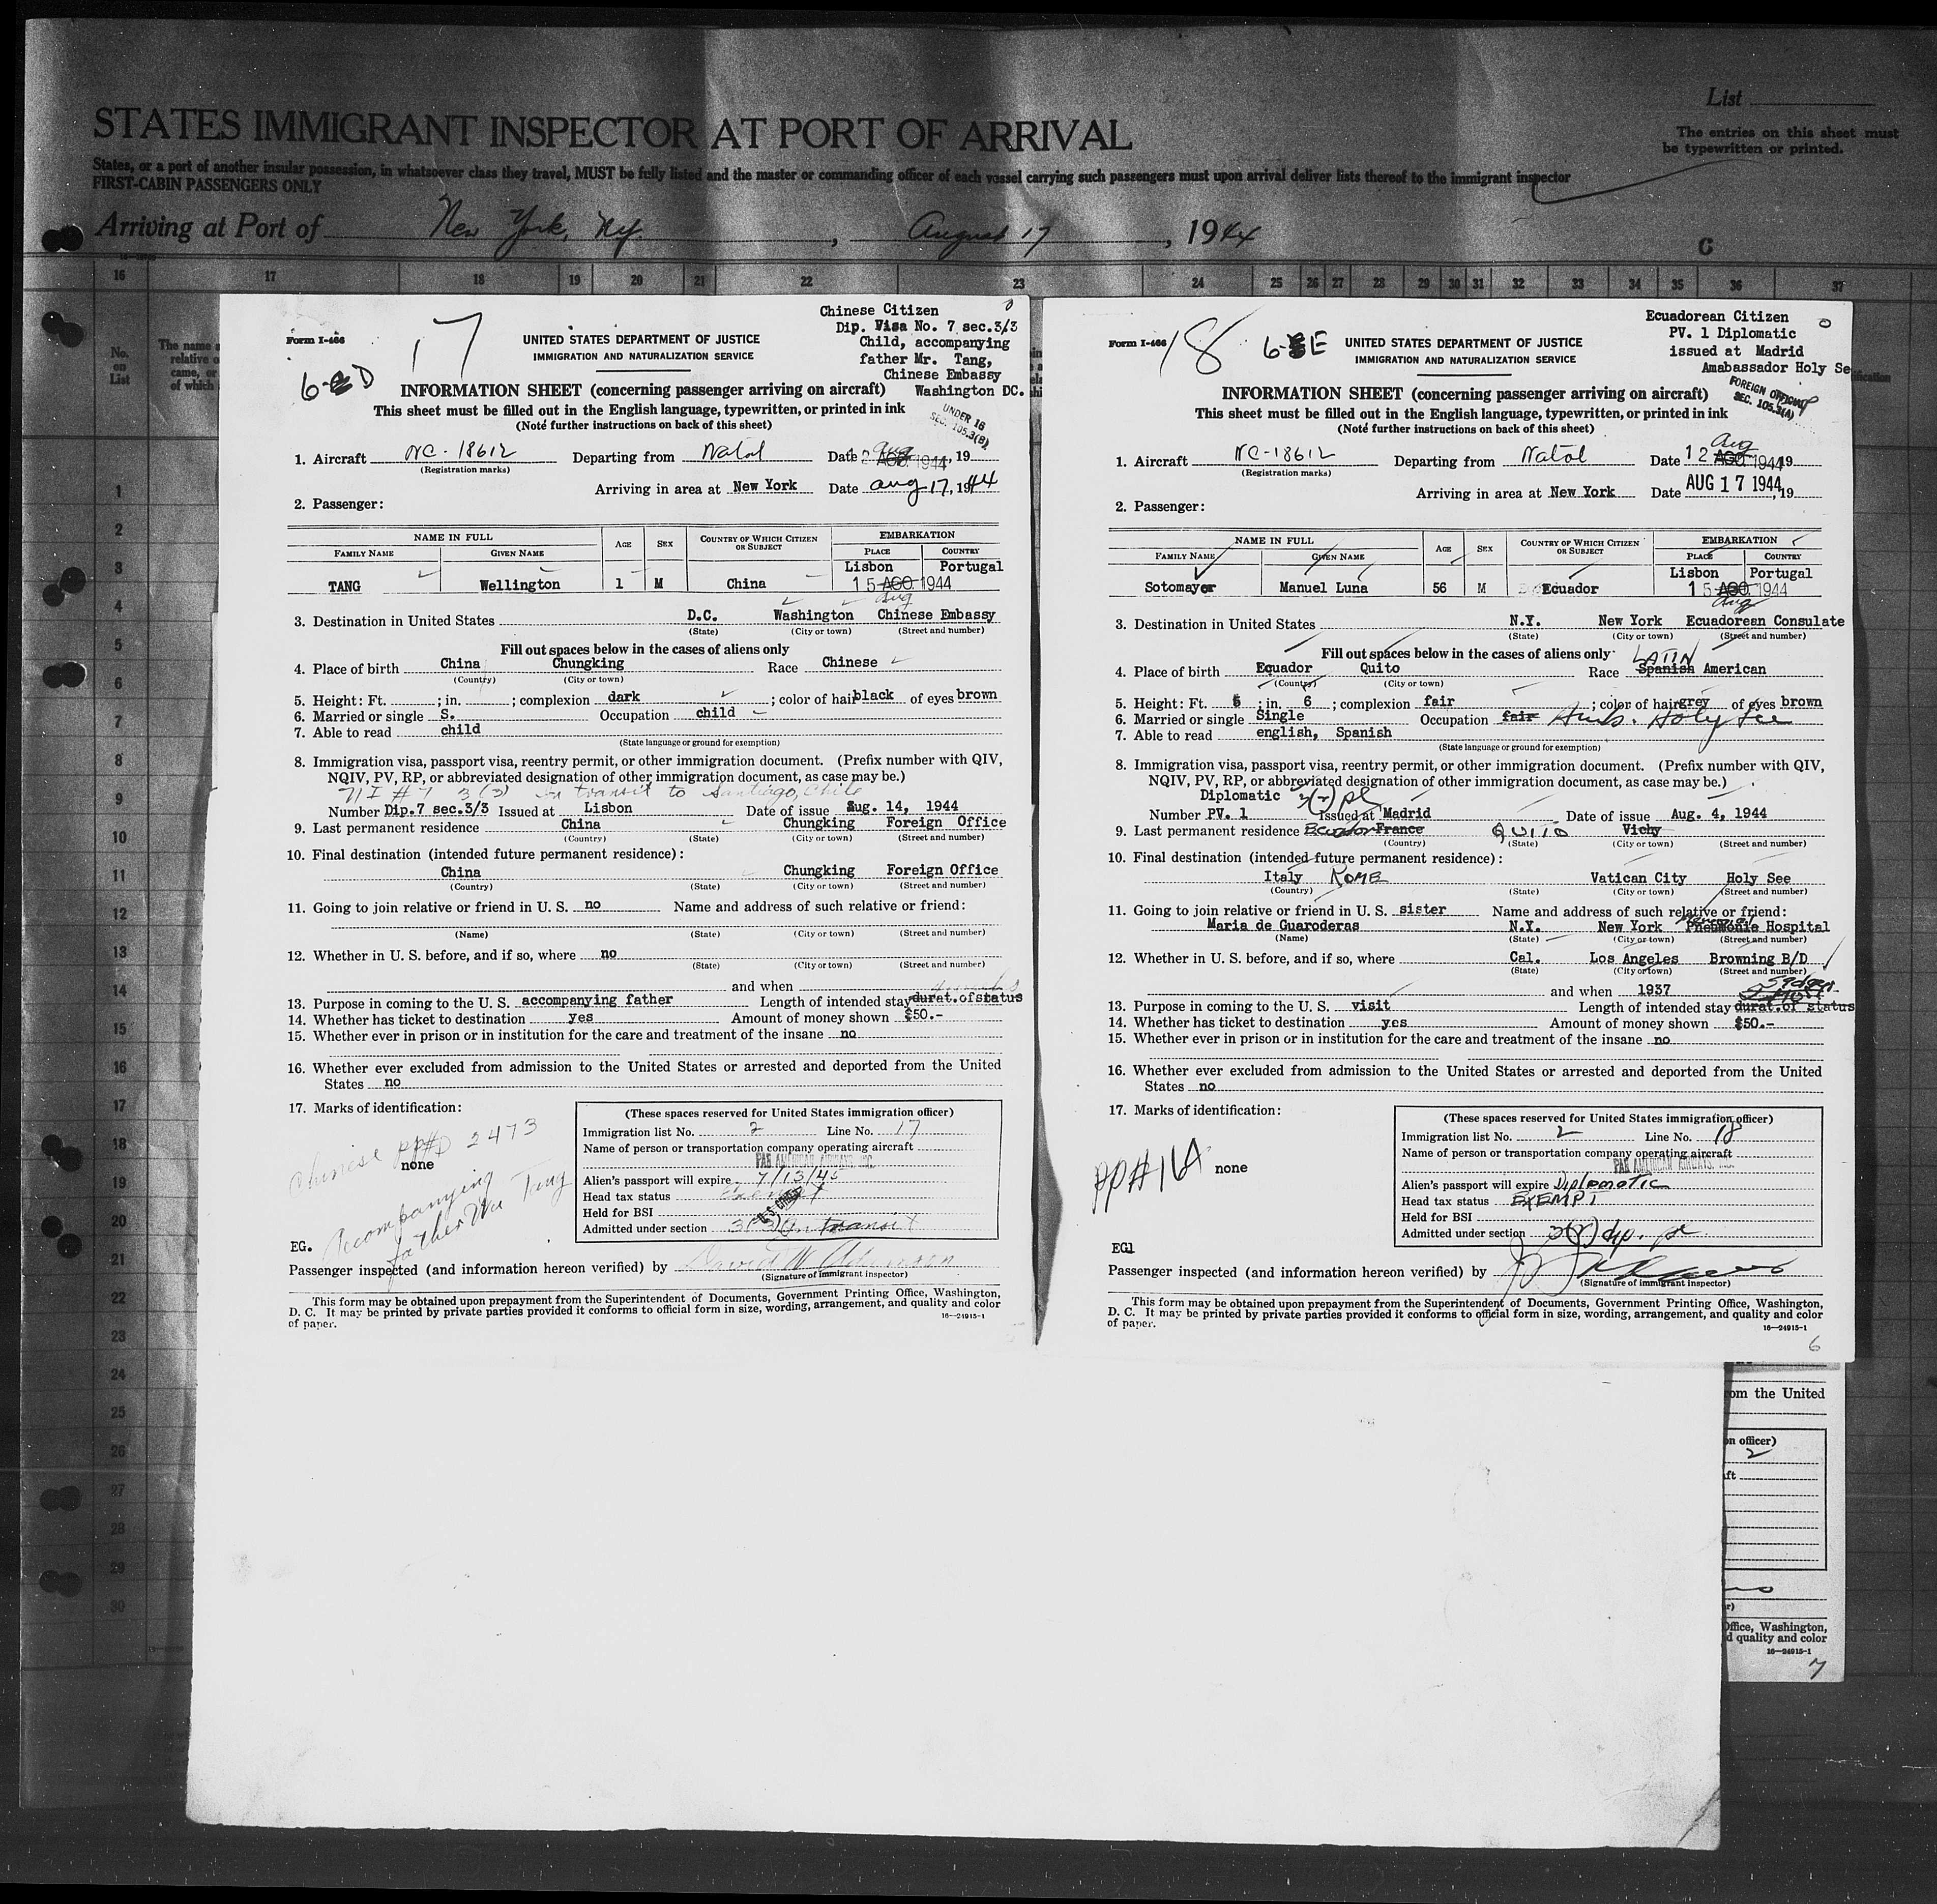 List
STATES IMMIGRANT INSPECTOR AT PORT OF ARRIVAL
The entries on this sheet must
be typewritten or printed.
States, or a port of another insular possession, in whatsoever class they travel, MUST be fully listed and the master or commanding officer of each vessel carrying such passengers must upon arrival deliver lists thereof to the immigrant inspector
FIRST-CABIN PASSENGERS ONLY
Arriving at Port of New York, Ny. , August 17 , 1944
C
16 17 18 19 20 21 22 23 24 25 26 27 28 29 30 31 32 33 34 35 36 37
No.
on
List
The name
relative o
came, or
of which
1
2
3
4
5
6
7
8
9
10
11
12
13
14
15
16
17
18
19
20
21
22
23
24
25
26
27
28
29
30
Chinese Citizen
Dip. Visa No. 7 sec.3/3
Child, accompanying
father Mr. Tang,
Chinese Embassy
Washington DC.
Form I-466
17
6-D
UNITED STATES DEPARTMENT OF JUSTICE
IMMIGRATION AND NATURALIZATION SERVICE
INFORMATION SHEET (concerning passenger arriving on aircraft)
This sheet must be filled out in the English language, typewritten, or printed in ink
(Note further instructions on back of this sheet)
UNDER 16
SEC. 105.3(B)
1. Aircraft NC-18612 Departing from Natal Date Aug AGO 1944, 19
(Registration marks)
Arriving in area at New York Date Aug 17, 1944
2. Passenger:
NAME IN FULL AGE SEX COUNTRY OF WHICH CITIZEN OR SUBJECT EMBARKATION
FAMILY NAME GIVEN NAME PLACE COUNTRY
Lisbon Portugal
TANG Wellington 1 M China 15 AGO 1944
Aug
3. Destination in United States D.C. Washington Chinese Embassy
(State) (City or town) (Street and number)
Fill out spaces below in the cases of aliens only
4. Place of birth China Chungking Race Chinese
(Country) (City or town)
5. Height: Ft. ; in. ; complexion dark ; color of hair black of eyes brown
6. Married or single S. Occupation child
7. Able to read child
(State language or ground for exemption)
8. Immigration visa, passport visa, reentry permit, or other immigration document. (Prefix number with QIV,
NQIV, PV, RP, or abbreviated designation of other immigration document, as case may be.)
#7 3(3) In transit to Santiago, Chile
Number Dip.7 sec.3/3 Issued at Lisbon Date of issue Aug. 14, 1944
9. Last permanent residence China Chungking Foreign Office
(Country) (State) (City or town) (Street and number)
10. Final destination (intended future permanent residence):
China Chungking Foreign Office
(Country) (State) (City or town) (Street and number)
11. Going to join relative or friend in U. S. no Name and address of such relative or friend:
(Name) (State) (City or town) (Street and number)
12. Whether in U. S. before, and if so, where no
(State) (City or town) (Street and number)
and when
13. Purpose in coming to the U. S. accompanying father Length of intended stay durat.of status
14. Whether has ticket to destination yes Amount of money shown $50.-
15. Whether ever in prison or in institution for the care and treatment of the insane no
16. Whether ever excluded from admission to the United States or arrested and deported from the United
States no
17. Marks of identification:
Chinese PP#D 2473
none
Accompanying
father Wu Tang
(These spaces reserved for United States immigration officer)
Immigration list No. 2 Line No. 17
Name of person or transportation company operating aircraft
PAN AMERICAN AIRWAYS, INC.
Alien's passport will expire 7/13/45
Head tax status
Held for BSI
Admitted under section 3(3) In transit
EG.
Passenger inspected (and information hereon verified) by
(Signature of immigrant inspector)
This form may be obtained upon prepayment from the Superintendent of Documents, Government Printing Office, Washington,
D. C. It may be printed by private parties provided it conforms to official form in size, wording, arrangement, and quality and color
of paper.
16—24915-1
Ecuadorean Citizen
PV. 1 Diplomatic
issued at Madrid
Amabassador Holy Se
FOREIGN OFFICIAL
SEC. 105.3(A)
Form I-466
18
6-E
UNITED STATES DEPARTMENT OF JUSTICE
IMMIGRATION AND NATURALIZATION SERVICE
INFORMATION SHEET (concerning passenger arriving on aircraft)
This sheet must be filled out in the English language, typewritten, or printed in ink
(Note further instructions on back of this sheet)
Aug
1. Aircraft NC-18612 Departing from Natal Date 12 AGO 1944 19
(Registration marks)
Arriving in area at New York Date AUG 17 1944, 19
2. Passenger:
NAME IN FULL AGE SEX COUNTRY OF WHICH CITIZEN OR SUBJECT EMBARKATION
FAMILY NAME GIVEN NAME PLACE COUNTRY
Lisbon Portugal
Sotomayor Manuel Luna 56 M Ecuador 15 AGO 1944
Aug
3. Destination in United States N.Y. New York Ecuadorean Consulate
(State) (City or town) (Street and number)
Fill out spaces below in the cases of aliens only
LATIN
4. Place of birth Ecuador Quito Race Spanish American
(Country) (City or town)
5. Height: Ft. 5 ; in. 6 ; complexion fair ; color of hair grey of eyes brown
6. Married or single Single Occupation fair Amb. Holy See
7. Able to read english, Spanish
(State language or ground for exemption)
8. Immigration visa, passport visa, reentry permit, or other immigration document. (Prefix number with QIV,
NQIV, PV, RP, or abbreviated designation of other immigration document, as case may be.)
Diplomatic
Number PV. 1 Issued at Madrid Date of issue Aug. 4, 1944
9. Last permanent residence Ecuador France QUITO Vichy
(Country) (State) (City or town) (Street and number)
10. Final destination (intended future permanent residence):
Italy ROME Vatican City Holy See
(Country) (State) (City or town) (Street and number)
11. Going to join relative or friend in U. S. sister Name and address of such relative or friend:
Maria de Guaroderas N.Y. New York Memorial Hospital
(Name) (State) (City or town) (Street and number)
12. Whether in U. S. before, and if so, where Cal. Los Angeles Browning B/D
(State) (City or town) (Street and number)
and when 1937
13. Purpose in coming to the U. S. visit Length of intended stay durat.of status
14. Whether has ticket to destination yes Amount of money shown $50.-
15. Whether ever in prison or in institution for the care and treatment of the insane no
16. Whether ever excluded from admission to the United States or arrested and deported from the United
States no
17. Marks of identification:
PP#16A none
(These spaces reserved for United States immigration officer)
Immigration list No. 2 Line No. 18
Name of person or transportation company operating aircraft
PAN AMERICAN AIRWAYS, INC.
Alien's passport will expire Diplomatic
Head tax status EXEMPT
Held for BSI
Admitted under section
EG1
Passenger inspected (and information hereon verified) by
(Signature of immigrant inspector)
This form may be obtained upon prepayment from the Superintendent of Documents, Government Printing Office, Washington,
D. C. It may be printed by private parties provided it conforms to official form in size, wording, arrangement, and quality and color
of paper.
16—24915-1
6
om the United
on officer)
2
ft
r)
Office, Washington,
d quality and color
16—24915-1
7